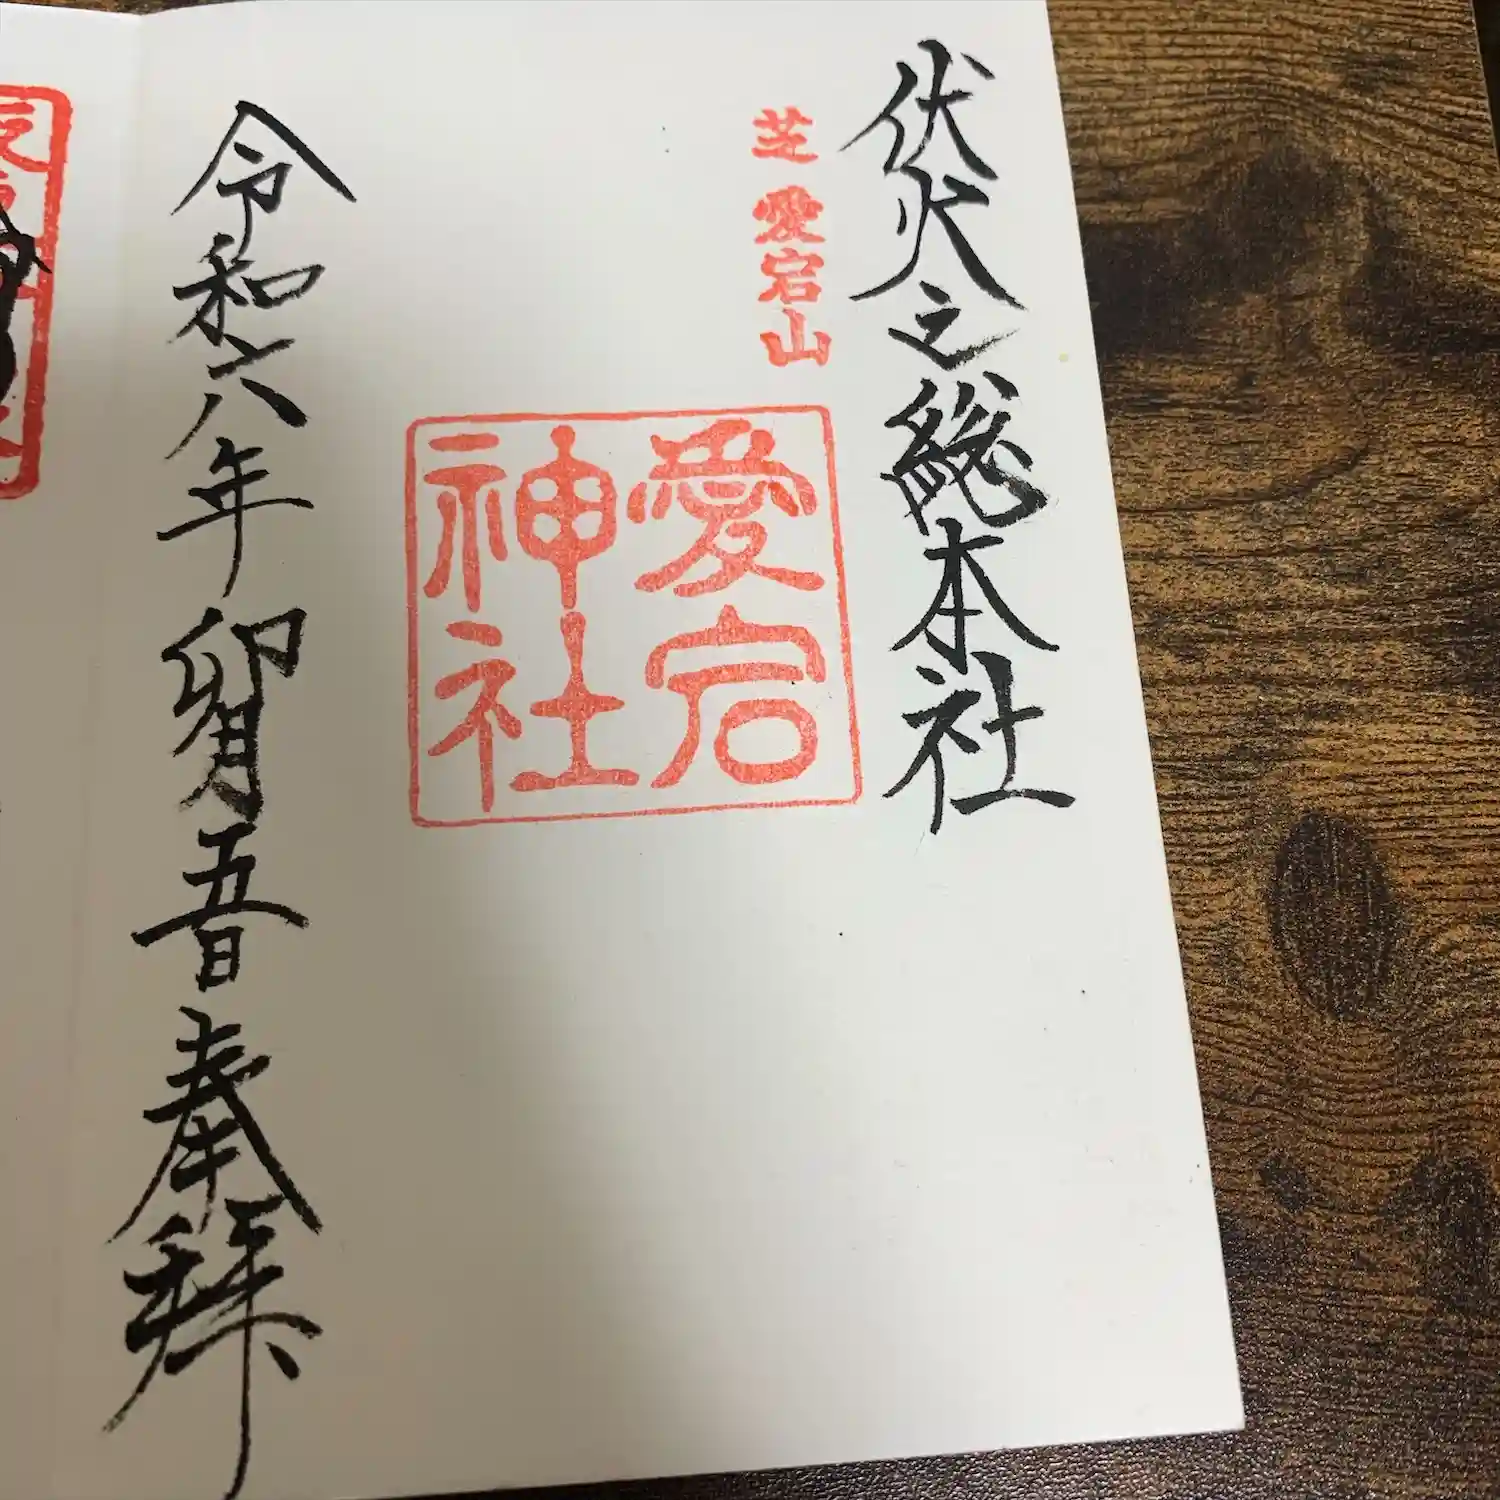 伏火之総本社
芝 愛宕山
愛宕
神社
令和六年卯月五日奉拜